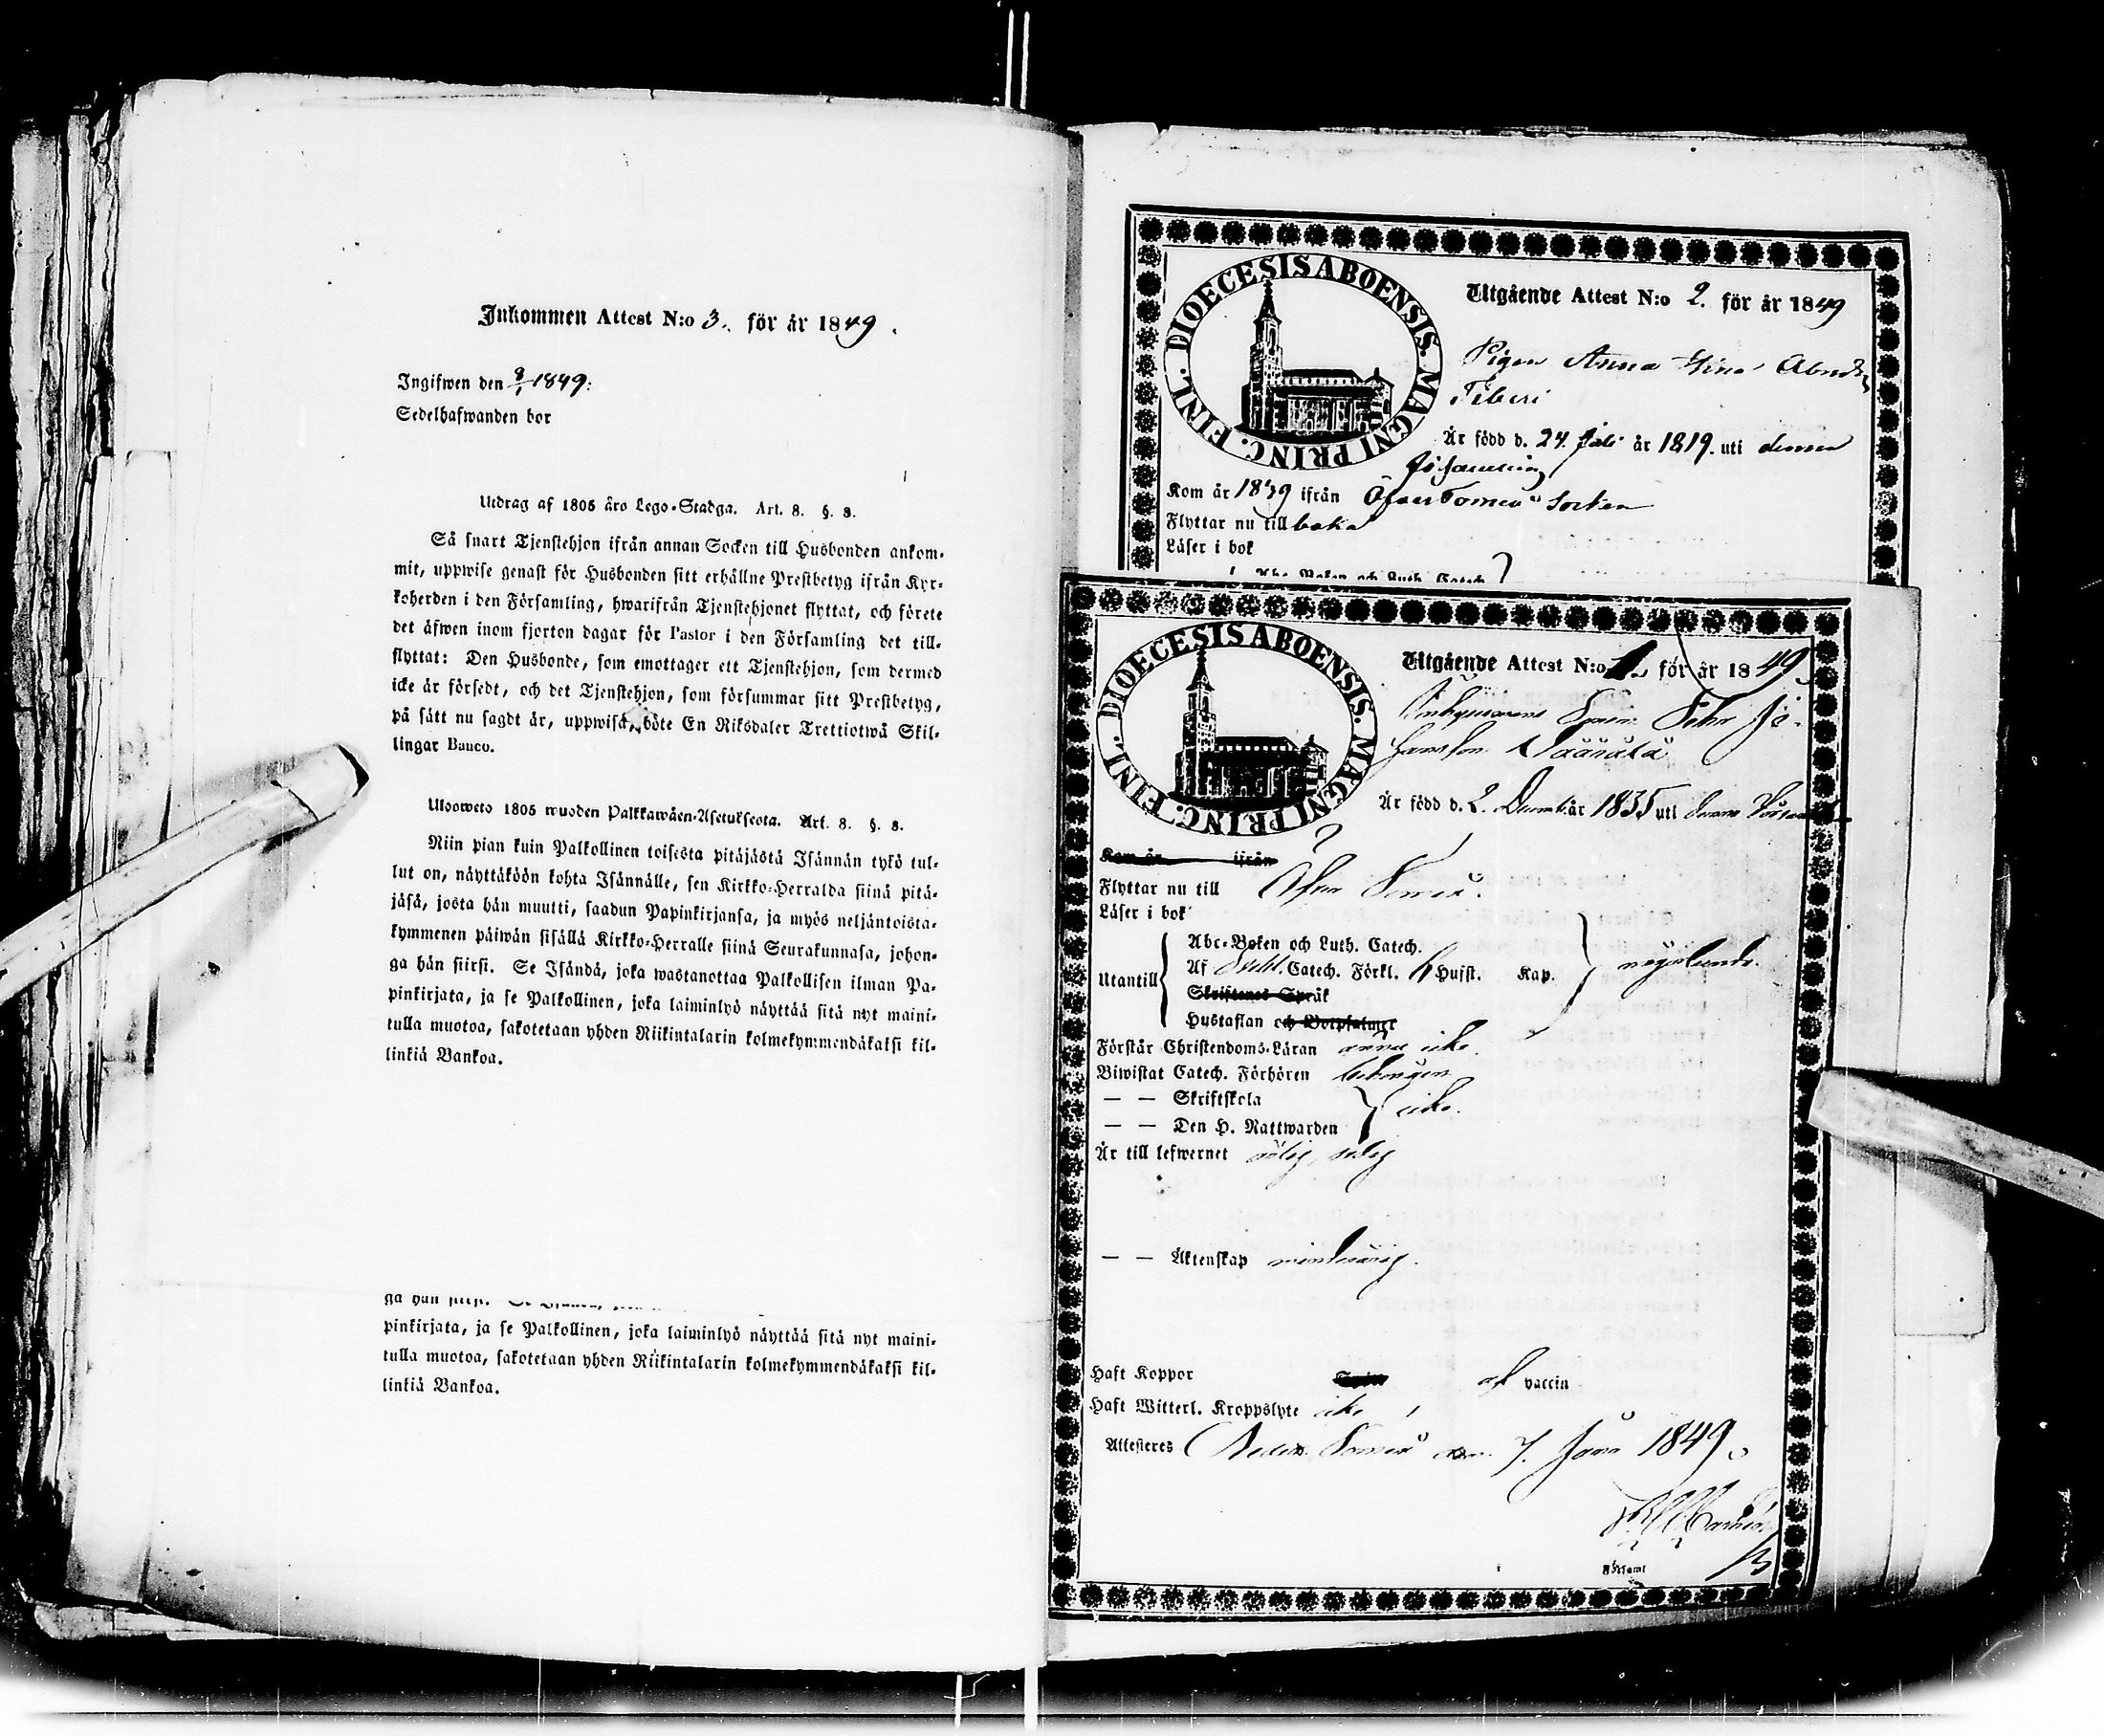 Inkommen Attest N:o 3. för år 1849.
Ingifwen den 9/1 1849:
Sedelhafwanden bor
Utdrag af 1805 års Lego-Stadga. Art. 8. §. 8.
Så snart Tjenstehjon ifrån annan Socken till Husbonden ankom-
mit, uppwise genast för Husbonden sitt erhållne Prestbetyg ifrån Kyr-
koherden i den Församling, hwarifrån Tjenstehjonet flyttat, och förete
det äfwen inom fjorton dagar för Pastor i den Församling det till-
flyttat: Den Husbonde, som emottager ett Tjenstehjon, som dermed
icke är försedt, och det Tjenstehjon, som försummar sitt Prestbetyg,
på sätt nu sagdt är, uppwisa, böte En Riksdaler Trettiotwå Skil-
lingar Banco.
Ulosweto 1805 wuoden Palkkawäen-Asetuksesta. Art. 8. §. 8.
Niin pian kuin Palkollinen toisesta pitäjästä Isännän tykö tul-
lut on, näyttäköön kohta Isännälle, sen Kirkko-Herralda siinä pitä-
jäsä, josta hän muutti, saadun Papinkirjansa, ja myös neljäntoista-
kymmenen päiwän sisällä Kirkko-Herralle siinä Seurakunnasa, johon-
ga hän siirsi. Se Isändä, joka wastanottaa Palkollisen ilman Pa-
pinkirjata, ja se Palkollinen, joka laiminlyö näyttää sitä nyt maini-
tulla muotoa, sakotetaan yhden Riikintalarin kolmekymmendäkaksi kil-
linkiä Bankoa.
pinkirjata, ja se Palkollinen, joka laiminlyö näyttää sitä nyt maini-
tulla muotoa, sakotetaan yhden Riikintalarin kolmekymmendäkaksi kil-
linkiä Bankoa.
DIOECESIS ABOENSIS. MAGNI PRINC. FINL.
Utgående Attest N:o 2. för år 1849
Pigan Anna Stina
Är född d. 24. Juli år 1819. uti denna
församling
Kom år 1849 ifrån Öfver Tornio Socken
Flyttar nu tillbaka
Läser i bok
Abc-Boken och Luth. Catech.
DIOECESIS ABOENSIS. MAGNI PRINC. FINL.
Utgående Attest N:o 1. för år 1849
Inhysmannens Son Jo-
hansson
Är född d. 2. Decemb år 1835 uti denna Församl
Kom år ifrån
Flyttar nu till Öfver Tornio.
Läser i bok
Utantill
Abc-Boken och Luth. Catech.
Af Svebil. Catech. Förkl. Hufst. Kap.
Skriftenes Språk
Hustaflan och Botpsalmer
Förstår Christendoms-Läran ännu icke.
Biwistat Catech. Förhören
— — Skriftskola
— — Den H. Nattwarden icke.
Är till lefwernet
— — Äktenskap minderårig.
Haft Koppor af vaccin
Haft Witterl. Kroppslyte icke
Attesteres Neder Tornio den 7. Janu 1849.